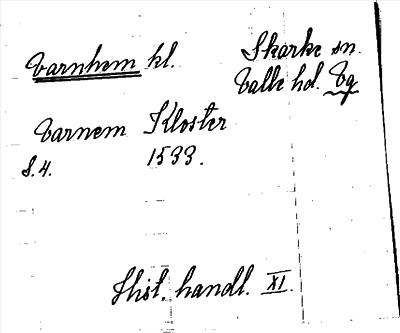 Varnhem kl.
Skarke sn.
Valle hd. Vg
Varnem Kloster
S.4. 1533.
Hist. handl. XI.